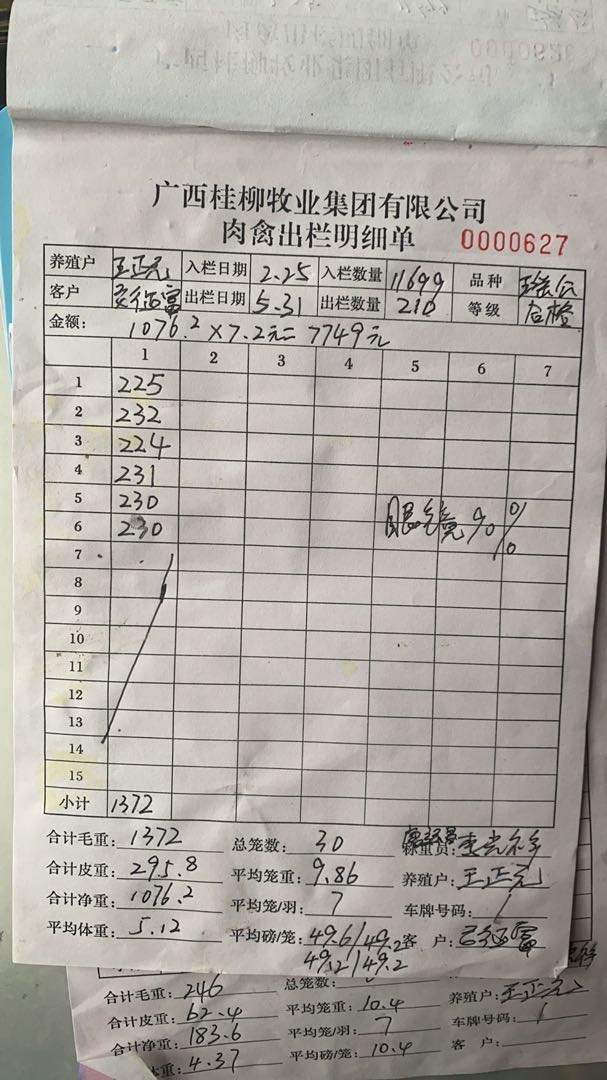 0000626
广西桂柳牧业集团有限公司
肉禽出栏明细单 0000627
养殖户 王正元 入栏日期 2.25 入栏数量 11699 品种 瑶公
客户 出栏日期 5.31 出栏数量 210 等级 合格
金额: 1076.2×7.2元=7749元
1 2 3 4 5 6 7
1 225
2 232
3 224
4 231
5 230 眼镜90%
6 230
7
8
9
10
11
12
13
14
15
小计 1372
合计毛重: 1372 总笼数: 30 称重员:
合计皮重: 295.8 平均笼重: 9.86 养殖户: 王正元
合计净重: 1076.2 平均笼/羽: 7 车牌号码: /
平均体重: 5.12 平均磅/笼: 49.6/49.2 客户:
49.2/49.2
合计毛重: 246 总笼数:
合计皮重: 62.4 平均笼重: 10.4 养殖户: 王正元
合计净重: 183.6 平均笼/羽: 7 车牌号码: /
体重: 4.37 平均磅/笼: 10.4 客户: